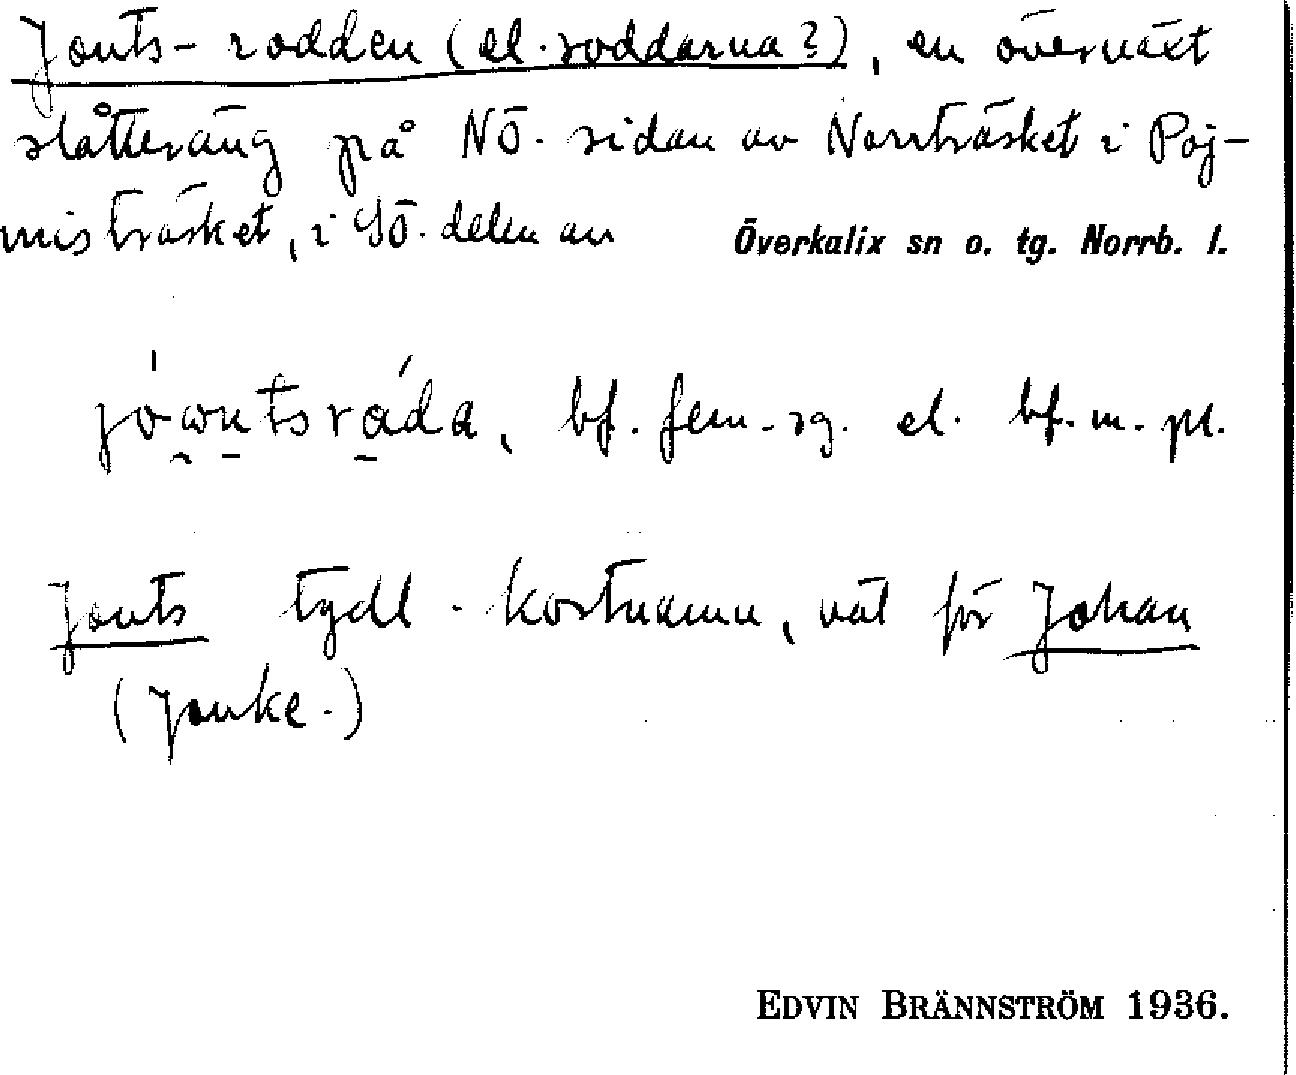 Jonts-rodden (el. roddarna?), en övernäxt
slåtteräng på NÖ. sidan av Norrträsket i Poj-
misträsket, i SÖ. delen av Överkalix sn o. tg. Norrb. l.
bf. fem. sg. el. bf. m. pl.
Jonts tydl. kortnamn, väl för Johan
(Jonke.)
EDVIN BRÄNNSTRÖM 1936.